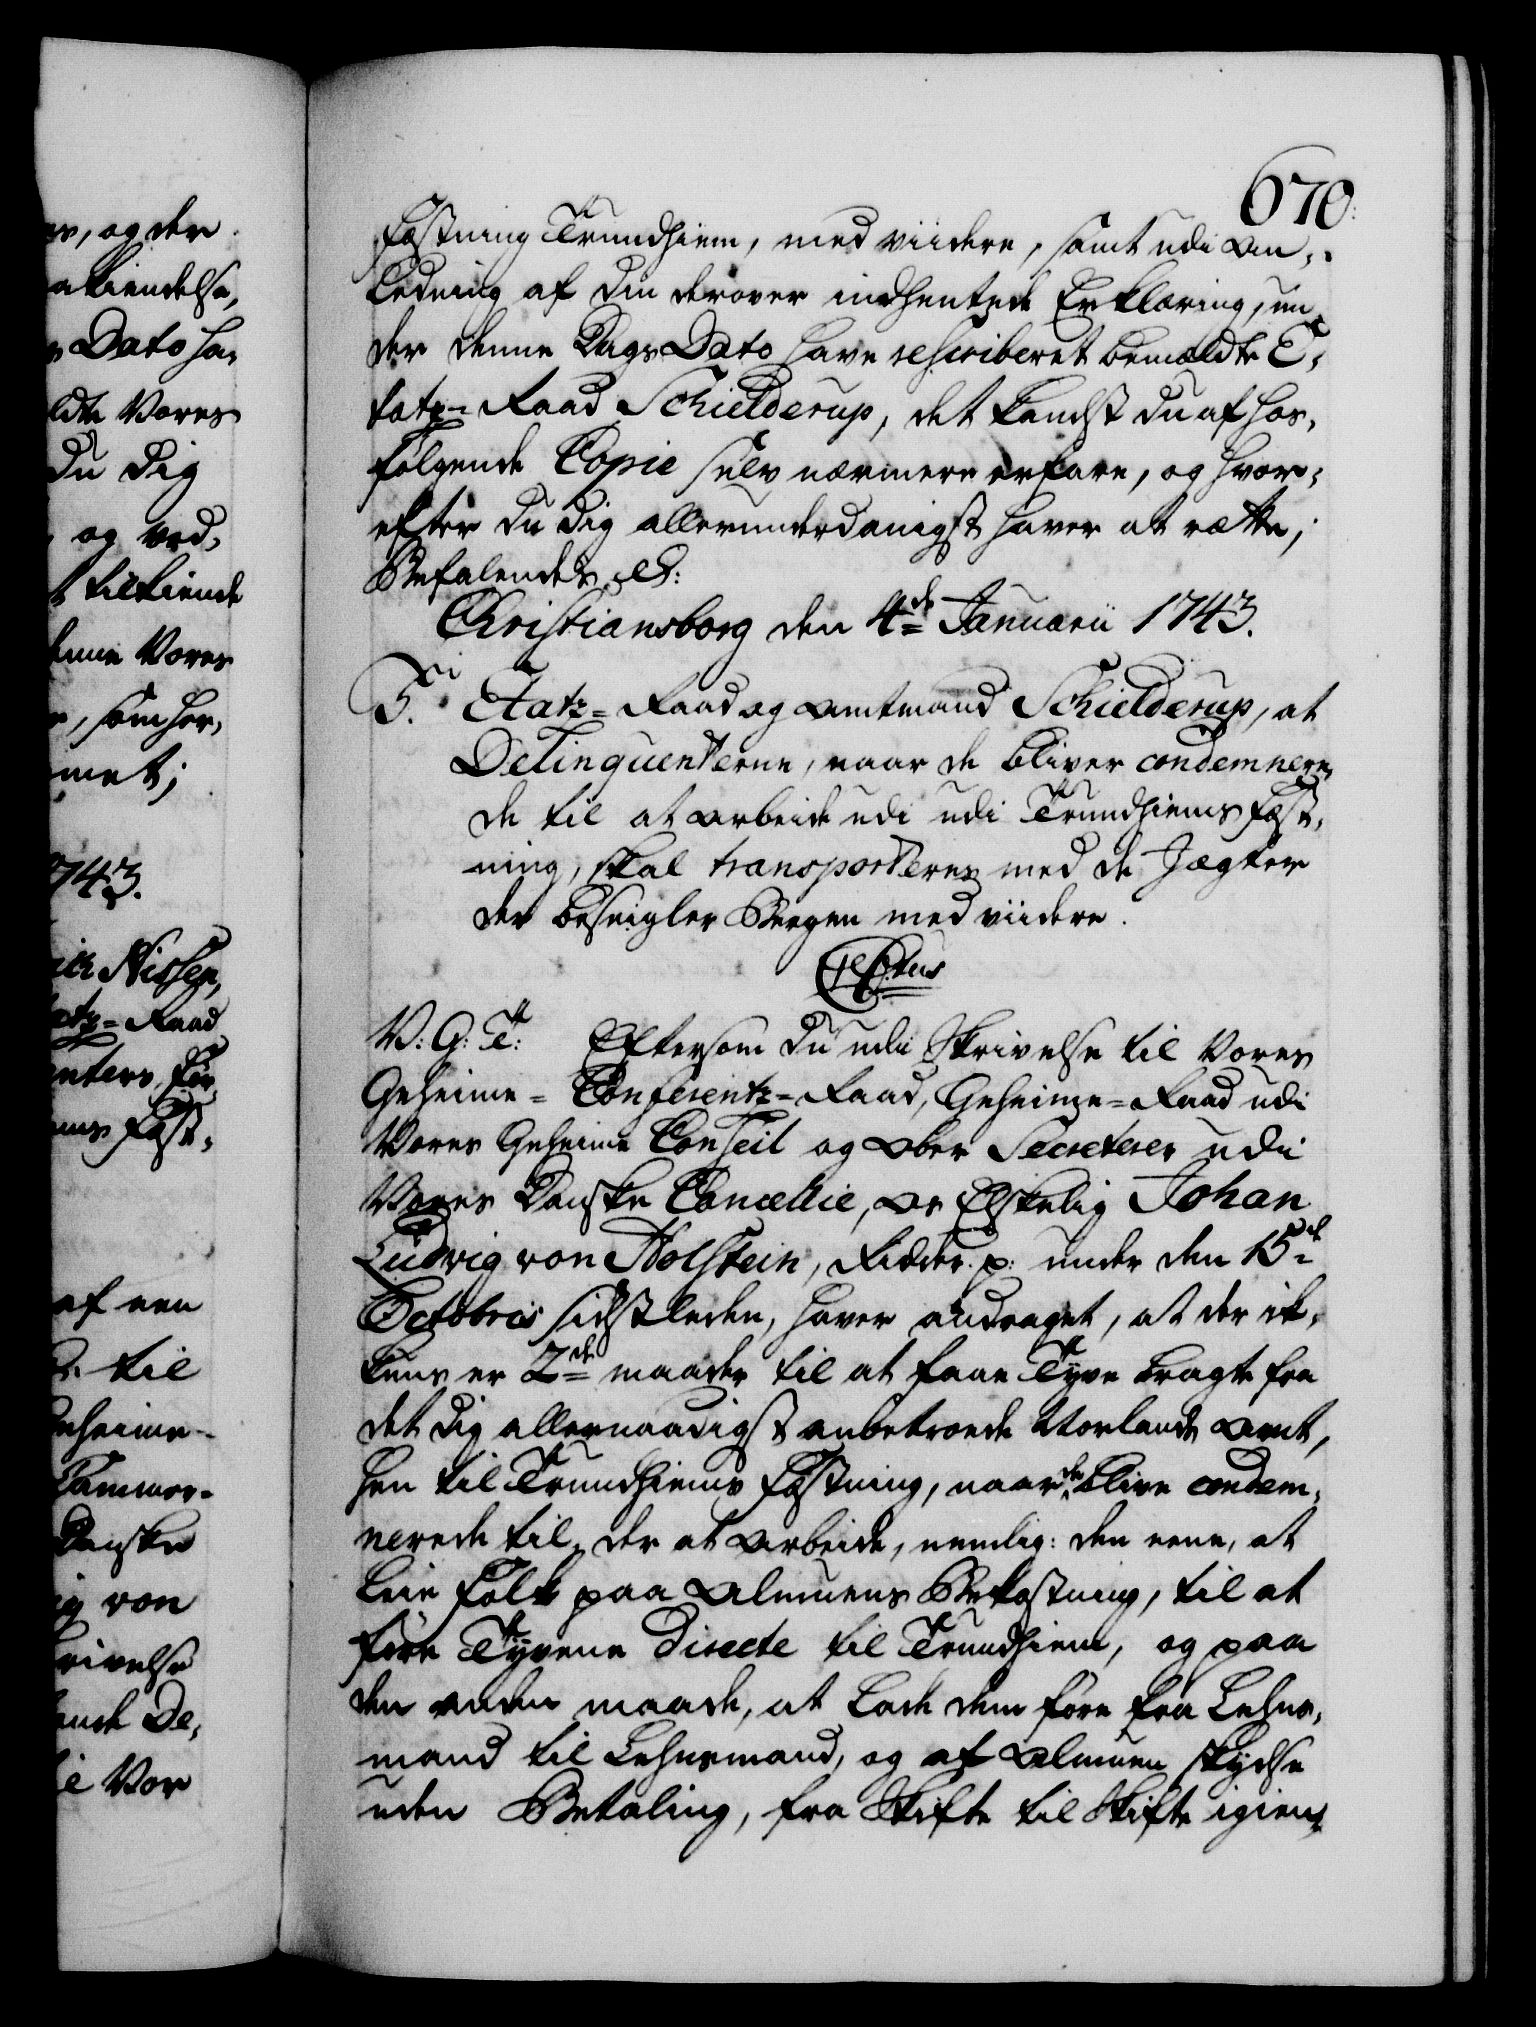 670.
Fæstning Trundhiem, med viidere, samt udi An-
ledning af din derover indhentede Erklæring, un-
der denne Dags Dato have rescriberet bemældte E-
tatz-Raad Schielderup, det kandst du af hos-
følgende Copie selv nærmere erfare, og hvor-
efter du dig allerunderdanigst haver at rette;
Befalendes etc:
Christiansborg den 4de Januarii 1743.
Til Etatz-Raad og Amtmand Schielderup, at
Delinquenterne, naar de bliver condemnere-
de til at arbeide udi udi Trundhiems Fæst-
ning, skal transporteres med de Jægter
der beseigler Bergen med viidere.
C6tus
V: G: T: Eftersom du udi Skrivelse til Vores
Geheime-Conferentz-Raad, Geheime-Raad udi
Vores Geheime Conseil og Ober Secreterer udi
Vores Danske Cancellie, Os Elskelig Johan
Ludvig von Holstein, Ridder p: under den 15de
Octobris sidstleden, haver andraget, at der ik-
kuns er 2de maader til at faae Tyve bragte fra
det dig allernaadigst anbetroede Norlands Amt,
hen til Trundhiems Fæstning, naar de blive condem-
nerede til, der at arbeide, nemlig: den eene, at
leie Folk paa Almuens Bekostning, til at
føre Tyvene directe til Trundhiem, og paa
den anden maade, at lade dem føre fra Lehns-
mand til Lehnsmand, og af Almuen skydse
uden Betaling, fra Skifte til Skifte igien-
es, og der
tilkiende
Dato ha-
ldte Vores
du dig
og ved-
t tilkiende
denne Vores
som her-
met;
1743.
ich Nissen,
atz-Raad
enters før-
ems Fæst-
af een
til
Geheime-
Cammer-
Danske
ig von
krivelse
De-
Vor